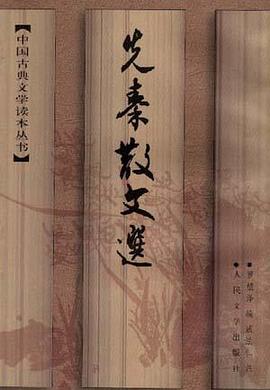 【中国古典文学读本丛书】
先秦散文選
■罗根泽 编 戚法仁 注
●人民文学出版社